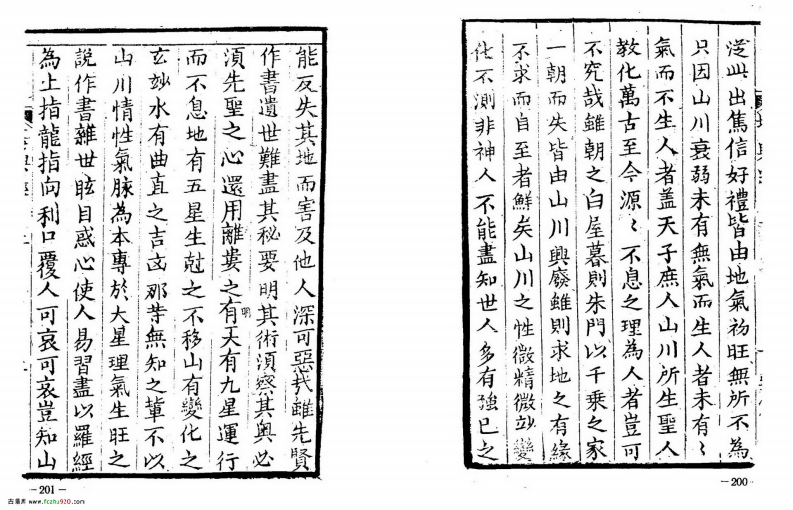 迭出篤信好禮皆由地氣初旺無所不為
只因山川衰弱未有無氣而生人者未有〻
氣而不生人者盖天子庶人山川所生聖人
教化萬古至今源〻不息之理為人者豈可
不究哉雖朝之白屋暮則朱門以千乘之家
一朝而失皆由山川興廢雖則求地之有緣
不求而自至者鮮矣山川之性微精微玅變
化不測非神人不能盡知世人多有強已之
-200-
能反失其地而害及他人深可惡哉雖先賢
作書遺世難盡其秘要明其術須察其奥必
須先聖之心還用離婁之明有天有九星運行
而不息地有五星生尅之不移山有變化之
玄玅水有曲直之吉凶那等無知之輩不以
山川情性氣脉為本專於大星理氣生旺之
說作書雜世眩目惑心使人易習盡以羅經
為上指龍指向利口覆人可哀可哀豈知山
-201-
www.fczhu920.com